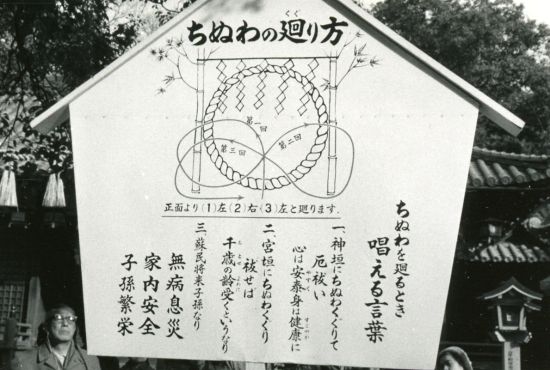 ちぬわの廻り方
くぐ
第一回
第二回
第三回
正面より(1)左(2)右(3)左と廻ります.
ちぬわを廻るとき
唱える言葉
一、神垣にちぬわくぐりて
厄祓い
心は安泰身は健康に
二、宮垣にちぬわくぐり
祓せば
千歳の齢受くというなり
三、蘇民将来子孫なり
無病息災
家内安全
子孫繁栄